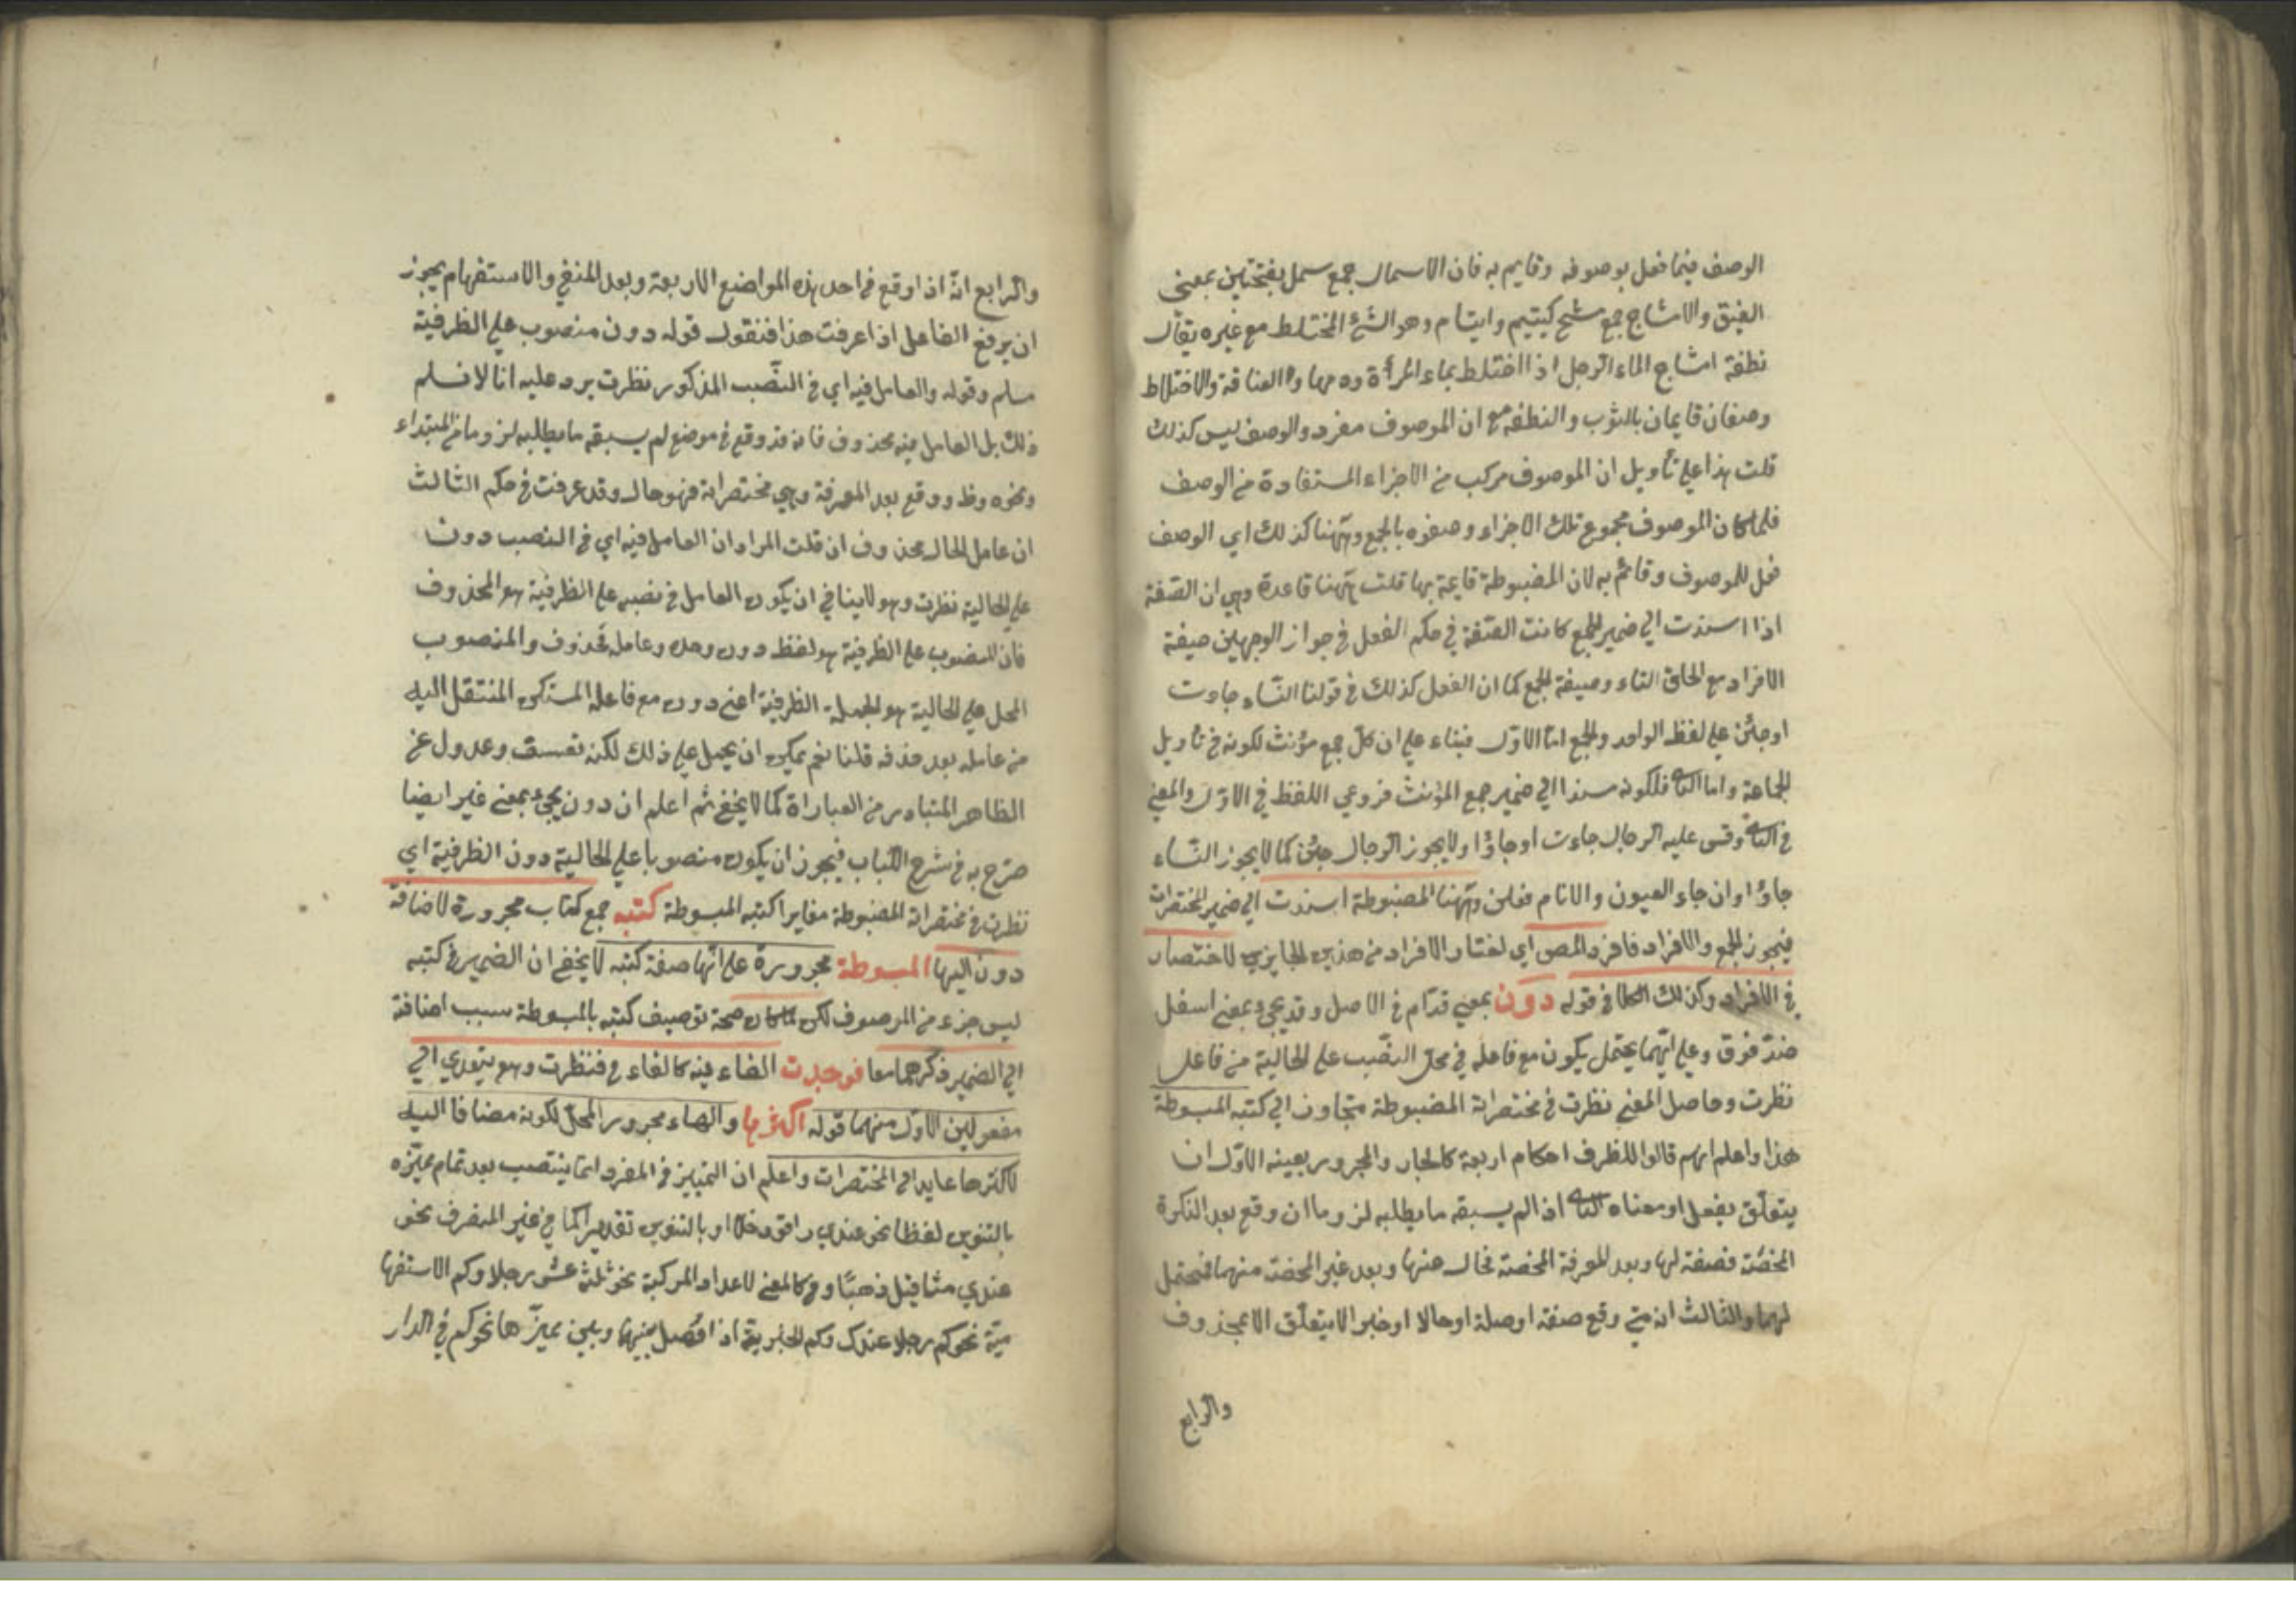 الوصف فيما فعل بوصوفه وقايم به فان الاسمال جمع سمل بفتحتين بمعنى
والامشاج جمع مشج كيتيم وايتام وهو الشئ المختلط مع غيره يقال
نطفة امشاج الماء الرجل اذا اختلط بماء المرأة ودمها والاختلاط
وصفان قايمان بالثوب والنطفة مع ان الموصوف مفرد والوصف ليس كذلك
قلت هذا على تأويل ان الموصوف مركب من الاجزاء المستفادة من الوصف
فلما كان الموصوف مجموع تلك الاجزاء وصفوه بالجمع وههنا كذلك اي الوصف
فعل للموصوف وقائم به لان المضبوطة قايمة بها قلت ههنا قاعدة وهي ان الصفة
اذا اسندت الي ضمير الجمع كانت الصفة في حكم الفعل في جواز الوجهين صيغة
الافراد مع الحاق التاء وصيغة الجمع كما ان الفعل كذلك في قولنا النساء جاءت
اوجئن علي لفظ الواحد والجمع اما الاول فبناء علي ان كل جمع مؤنث لكونه في تأويل
الجماعة واما الثاني فلكونه مسندا الي ضمير جمع المؤنث فروعي اللفظ في الاول والمعني
في الثاني وقس عليه الرجال جاءت اوجاؤا ولا يجوز الرجال جئن كما لا يجوز النساء
جاؤا وان جاء العيون والايام فعلن وههنا المضبوطة اسندت الي ضمير المختصرات
فيجوز الجمع والافراد فافرد المص اي اختار الافراد من هذين الجايزين للاختصار
في الافراد وكذلك الكلام في قوله دون بمعني قدام في الاصل وقد يجئ بمعني اسفل
ضد فوق وعلي ايهما يحتمل يكون مع فاعله في محل النصب علي الحالية من فاعل
نظرت وحاصل المعني نظرت في مختصراته المضبوطة متجاوزا الي كتبه المبسوطة
هذا واعلم انهم قالوا للظرف احكام اربعة كالجار والمجرور بعينه الاول ان
يتعلق بفعل او معناه الثاني اذا لم يسبقه ما يطلبه لزوما ان وقع بعد النكرة
المحضة فصفة لها وبعد المعرفة المحضة فحال عنها وبعد غير المحضة منهما فيحتمل
لهما والثالث انه متي وقع صفة او صلة او حالا او خبرا لا يتعلق الا بمحذوف
والرابع
والرابع انه اذا وقع في احد هذه المواضع الاربعة وبعد المنفي والاستفهام يجوز
ان يرفع الفاعل اذا عرفت هذا فنقول قوله دون منصوب علي الظرفية
مسلم وقوله والعامل فيه اي في النصب المذكور نظرت يرد عليه انا لا نسلم
ذلك بل العامل فيه محذوف فانه قد وقع في موضع لم يسبقه ما يطلبه لزوما من المبتداء
ونحوه وظ ووقع بعد المعرفة وهي مختصراته فهو حال وقد عرفت في حكم الثالث
ان عامل الحال محذوف ان قلت المراد ان العامل فيه اي في النصب دون
علي الحالية نظرت وهو لا ينافي ان يكون العامل في نصبه علي الظرفية هو المحذوف
فان المنصوب علي الظرفية هو لفظ دون وحده وعامله محذوف والمنصوب
المحل علي الحالية هو الجملة الظرفية اعني دون مع فاعله المستكن المنتقل اليه
من عامله بعد حذفه قلنا نعم يمكن ان يحمل علي ذلك لكنه تعسف وعدول عن
الظاهر المتبادر من العبارة كما لا يخفي ثم اعلم ان دون يجئ بمعني غير ايضا
صرح به في شرح اللباب فيجوز ان يكون منصوبا علي الحالية دون الظرفية اي
نظرت في مختصراته المضبوطة مغايرا كتبه المبسوطة كتبه جمع كتاب مجرورة لاضافة
دون اليها المبسوطة مجرورة علي انها صفة كتبه لا يخفي ان الضمير في كتبه
ليس جزء من الموصوف لكن لما كان صحة توصيف كتبه بالمبسوطة سبب اضافة
الي الضمير ذكرهما معا فوجدت الفاء فيه كالفاء في فنظرت وهو يتعدي الي
مفعولين الاول منهما قوله اكثرها والهاء مجرور المحل لكونه مضافا اليه
لاكثرها عايد الي المختصرات واعلم ان التمييز في المفرد انما ينتصب بعد تمام مميزه
بالتنوين لفظا نحو عندي راقود خلا او بالتنوين تقديرا كما في غير المنصرف نحو
عندي مثاقيل ذهبا وفي الاعداد المركبة نحو ثلثة عشر رجلا وكم الاستفها
مية نحو كم رجلا عندك وكم الخبرية اذا فصل بينها وبين مميزها نحو كم في الدار